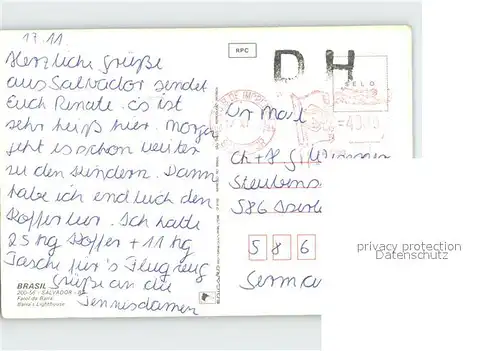 17.11
Herzliche Grüße
aus Salvador sendet
Euch Renate. Es ist
sehr heiß hier. Morgen
geht es schon weiter
zu den Kindern. Dann
habe ich endlich den
Koffer leer. Ich hatte
25 kg Koffer + 11 kg
Tasche für's Flugzeug
Grüße an die
Tennisdamen
BRASIL
200-56 - SALVADOR - BA
Farol da Barra
Barra's Lighthouse
RPC
DH
SELO
Ch + H
Steubens
586
5 8 6
Germa
privacy protection
Datenschutz